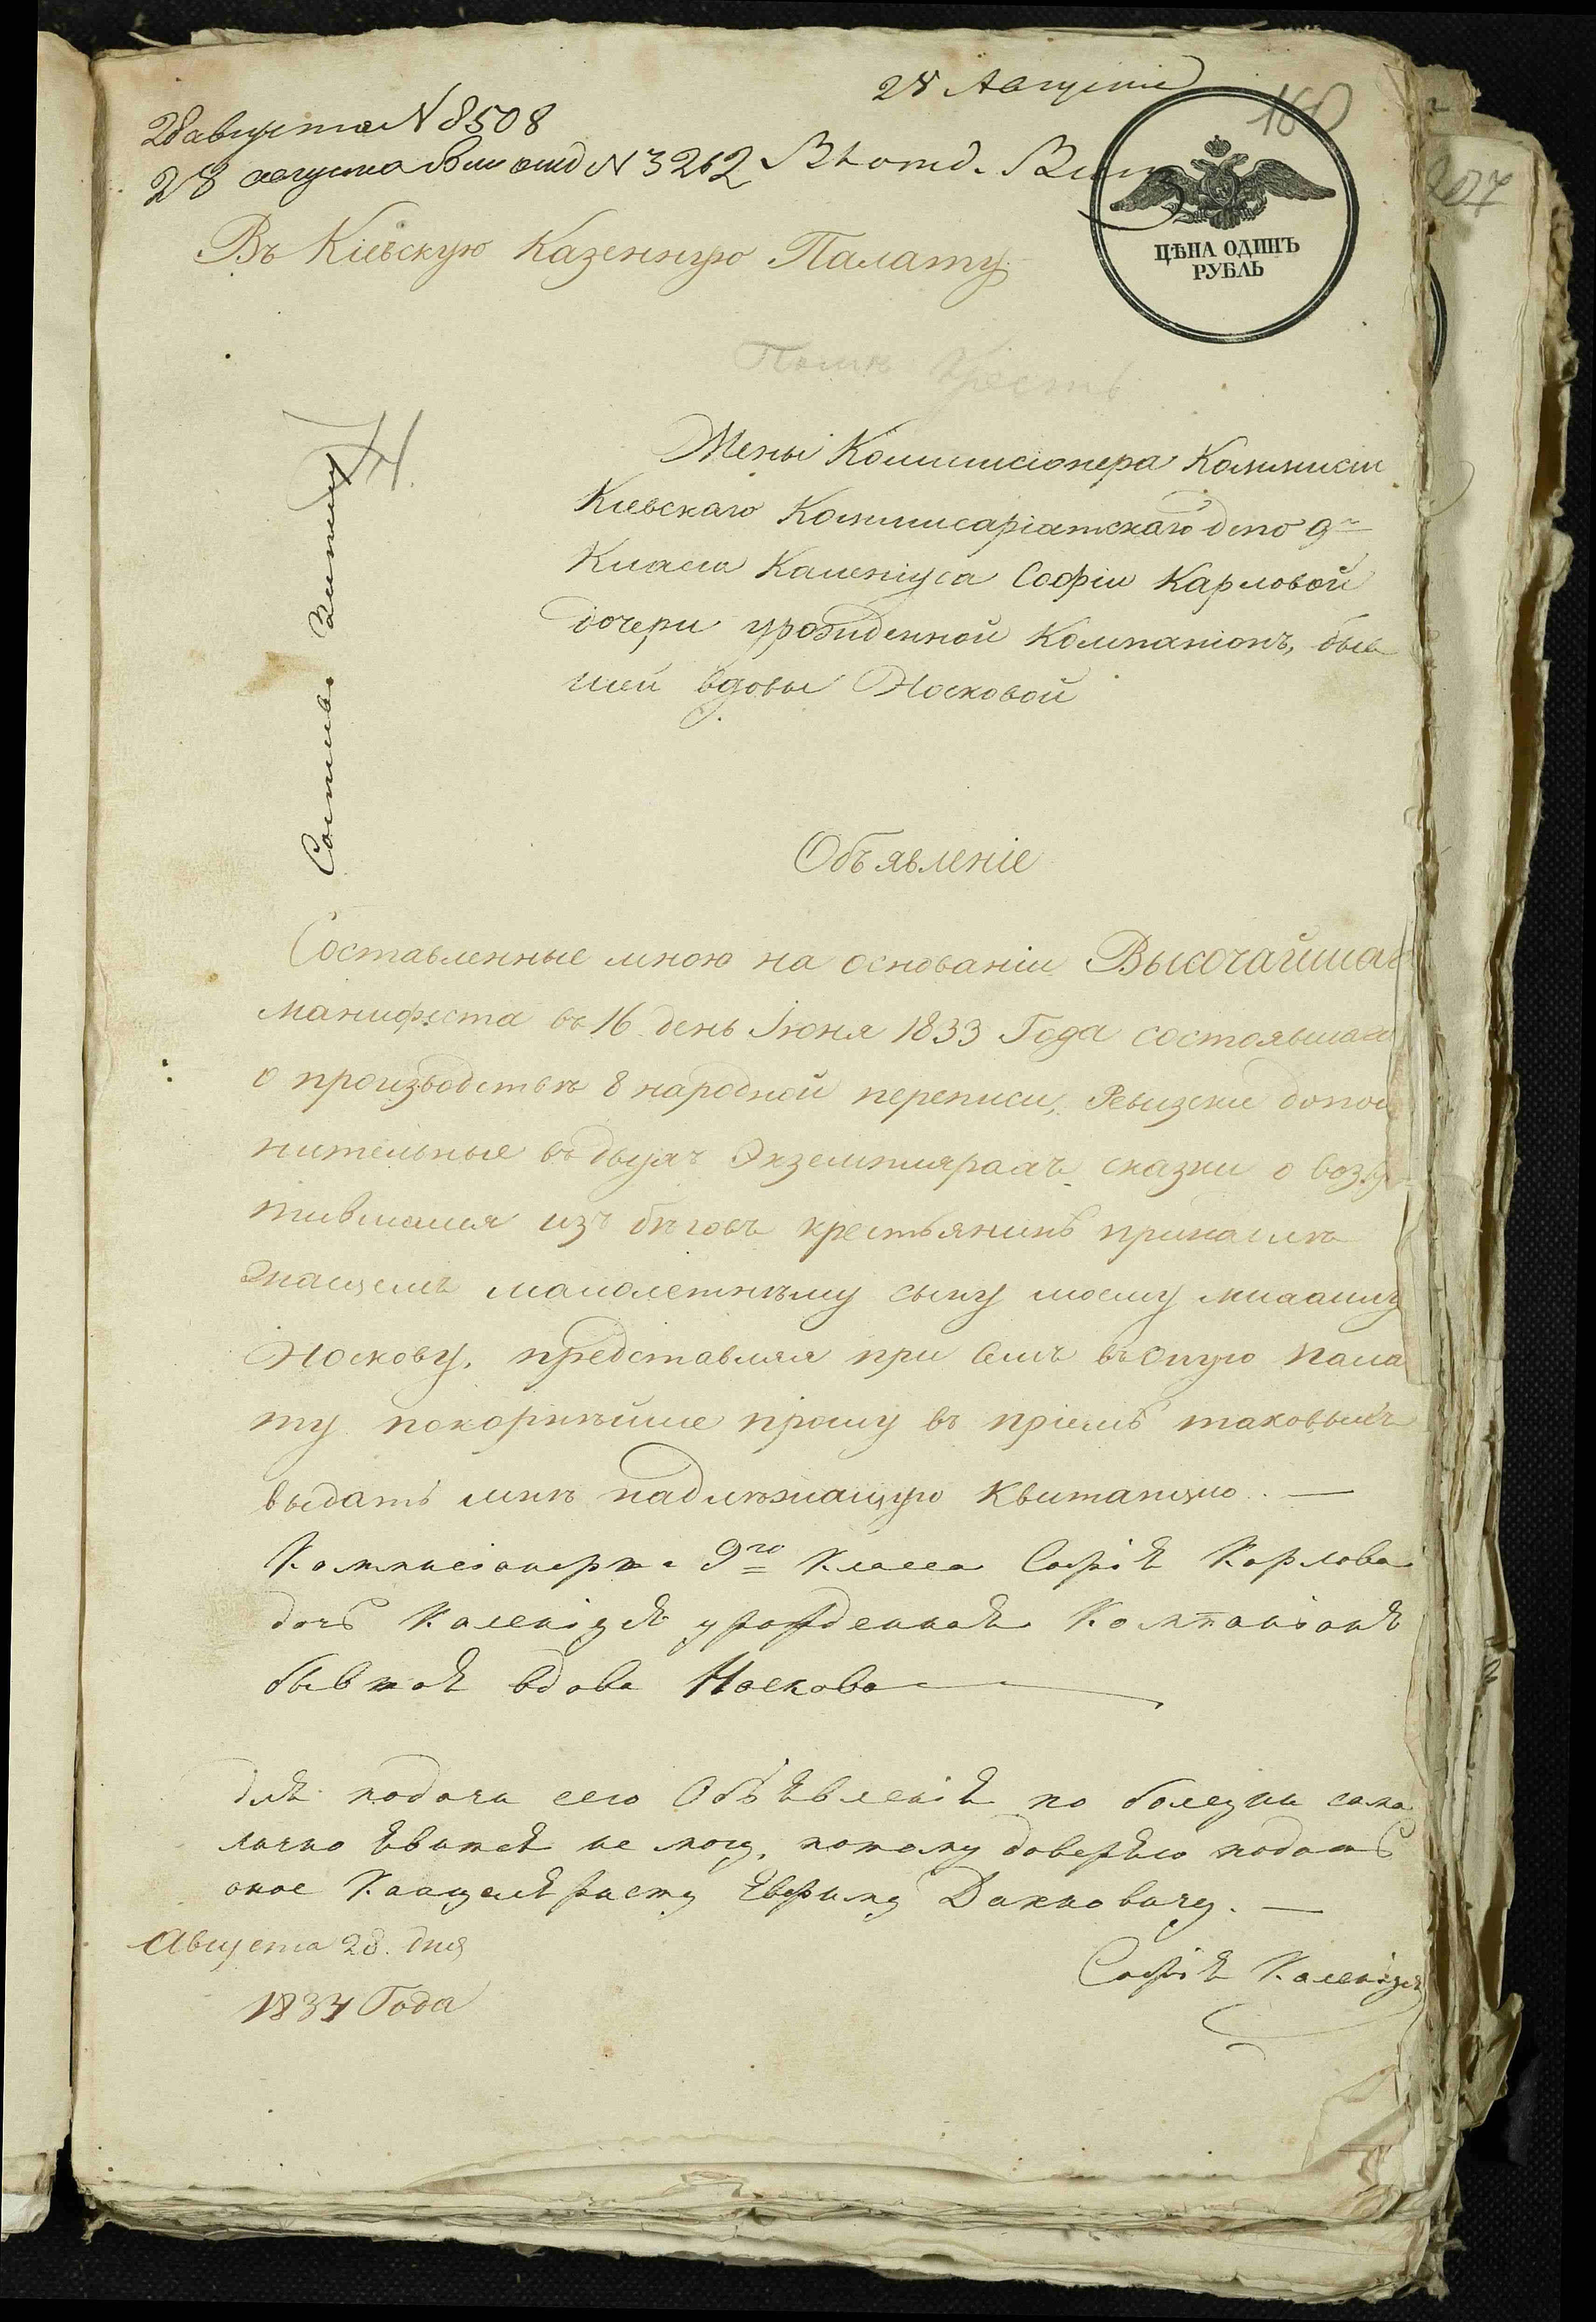 28 Августа
160
28 августа N 8508
28 августа отд N 3262 Въ отд.
ЦѢНА ОДИНЪ
РУБЛЬ
207
Въ Кіевскую Казенную Палату
Жены Коммисіонера Коммисіи
Кіевскаго Коммисаріатскаго депо 9го
Класа Каленіуса Софіи Карловой
дочери урожденной Компаніонъ, быв
шей вдовы Носковой
Объявленіе
Составленные мною на основаніи Высочайшаго
манифеста въ 16 день Іюня 1833 Года состоявшаго
о производствѣ 8 народной переписи, Ревизскіе допол
нительные въ двухъ Экземплярахъ сказки о возвра
тившемся изъ бѣговъ крестьянинѣ принадле
жащемъ малолетнему сыну моему
Носкову, представляя при семъ въ оную пала
ту покорнѣйше прошу въ пріемѣ таковыхъ
выдать мнѣ надлежащую квитанцію. —
Коммисіонерша 9го Класса Софія Карлова
дочь Каленіуся урожденная Компаніонъ
бывшая вдова Носкова
для подачи сего Объявленія по болезни сама
лично явится не могу, потому доверяю подать
оное Канцеляристу Ефиму Дахновичу. —
Августа 28. дня
1834 Года
Софія Каленіуся